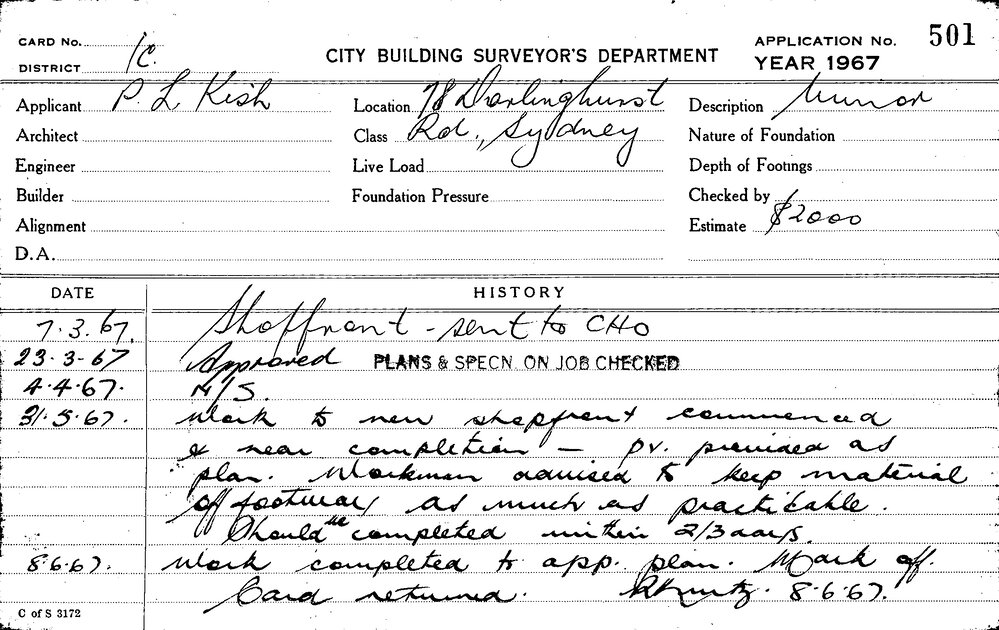 CARD No. 501
DISTRICT 1c.
CITY BUILDING SURVEYOR'S DEPARTMENT
APPLICATION No.
YEAR 1967
Applicant P L Kish Location 78 Darlinghurst Description Minor
Architect Class Rd., Sydney Nature of Foundation
Engineer Live Load Depth of Footings
Builder Foundation Pressure Checked by
Alignment Estimate $2000
D.A.
DATE HISTORY
7.3.67. Shopfront - sent to CHO
23-3-67 Approved PLANS & SPECN. ON JOB CHECKED
4.4.67. N/S.
31.5.67. Work to new shopfront commenced
& near completion — pv. provided as
plan. Workman advised to keep material
off footway as much as practicable.
Should be completed within 2/3 days.
8.6.67. Work completed to app. plan. Mark off.
Card returned. 8.6.67.
C of S 3172